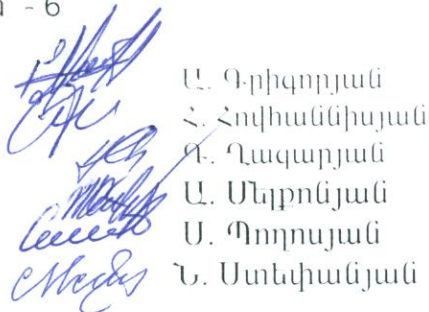 - 6
Ա. Գրիգորյան
Հ. Հովհաննիսյան
Գ. Ղազարյան
Ա. Մելքոնյան
Ս. Պողոսյան
Ն. Ստեփանյան